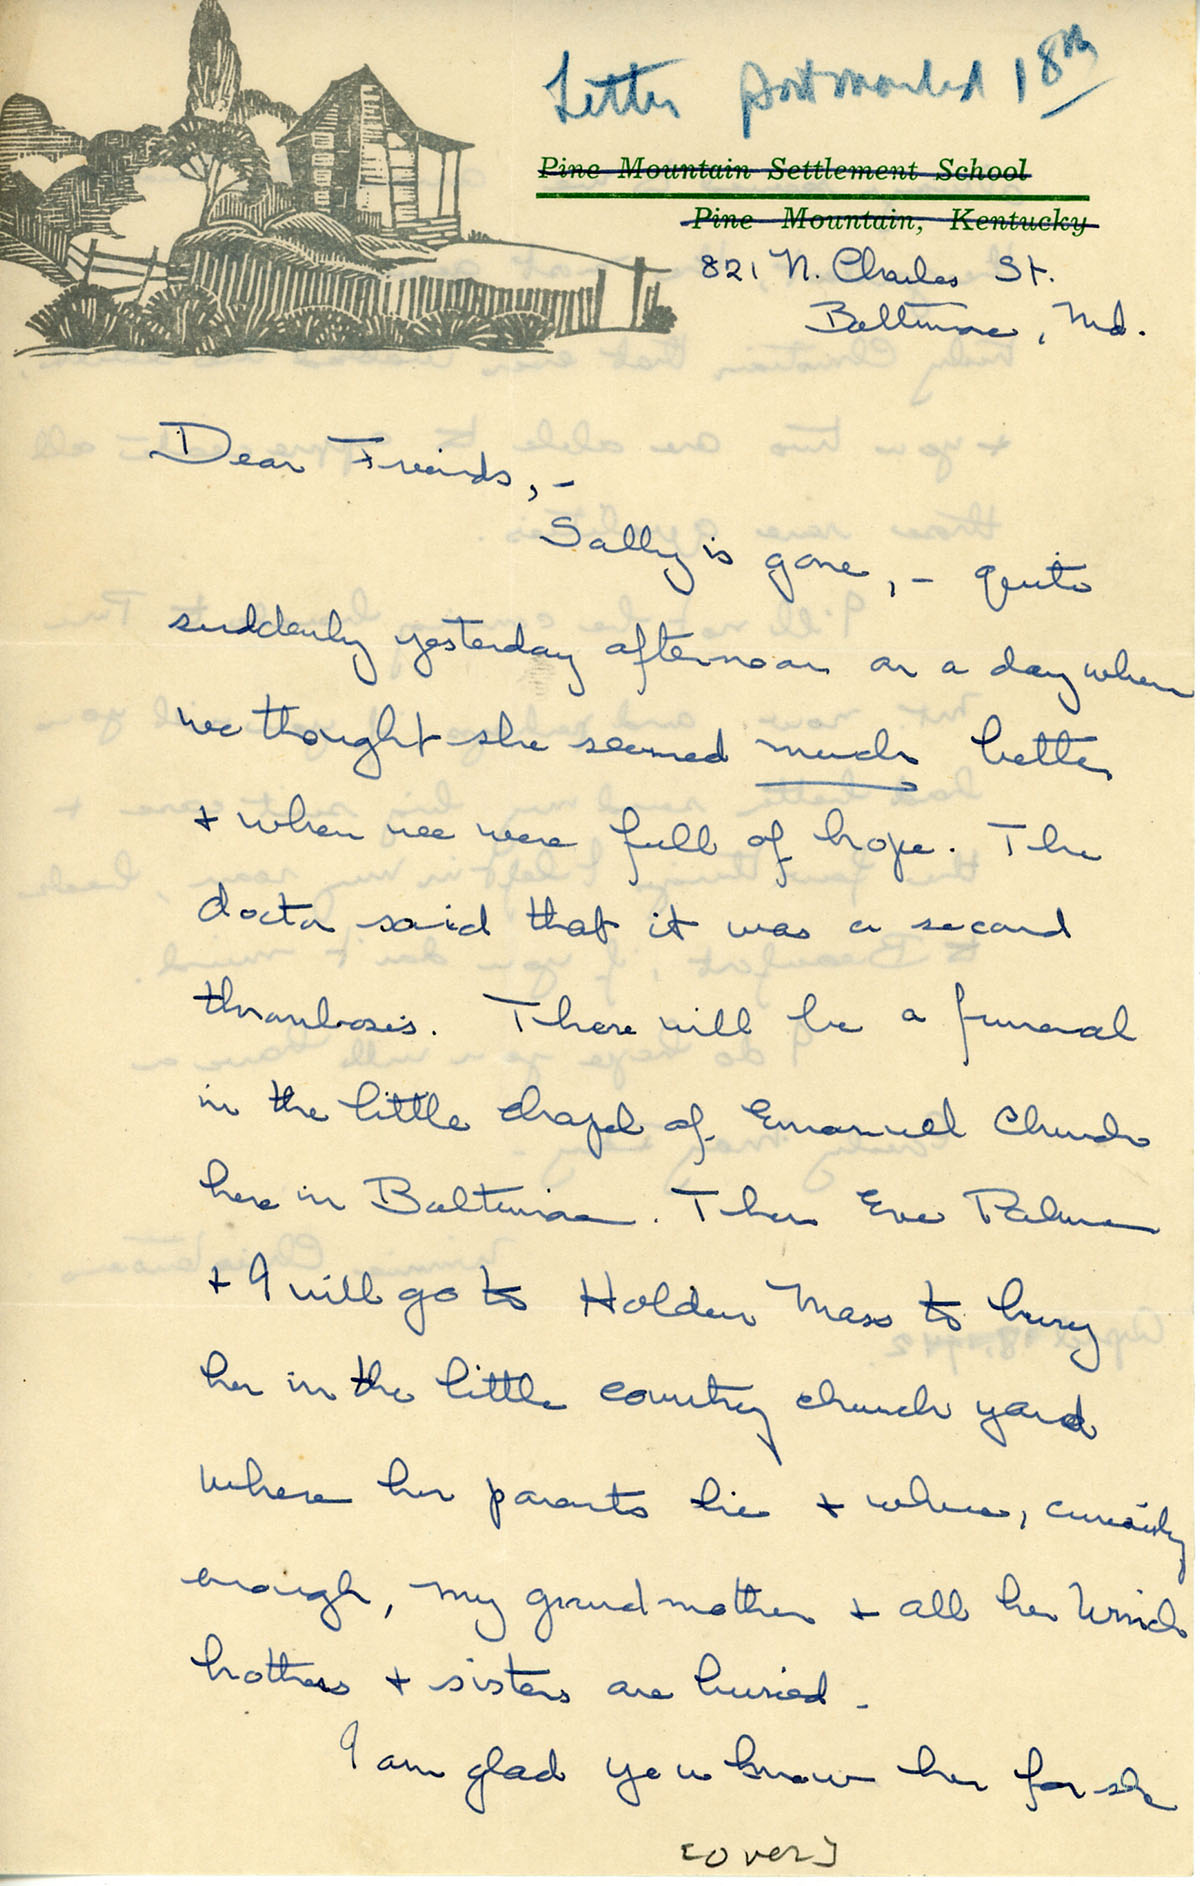 Letter postmarked 18th
Pine Mountain Settlement School
Pine Mountain, Kentucky
821 N. Charles St.
Baltimore, Md.
Dear Friends, -
Sally is gone, - quite
suddenly yesterday afternoon on a day when
we thought she seemed much better
+ when we were full of hope. The
doctor said that it was a second
thrombosis. There will be a funeral
in the little chapel of Emanuel Church
here in Baltimore. Then Eve
+ I will go to Holden Mass to bury
her in the little country church yard
where her parents lie + where, curiously
enough, my grandmother + all her
brothers + sisters are buried -
I am glad you knew her for she
[over]